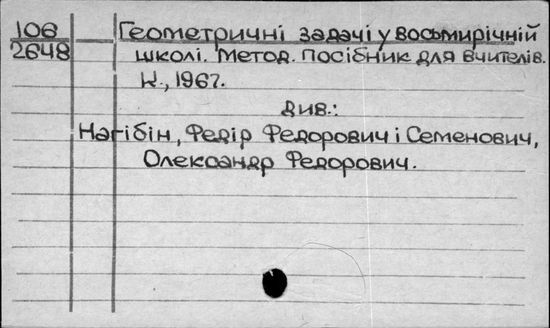 106
2648
Геометричні задачі у восьмирічній
школі. Метод. посібник для вчителів.
К., 1967.
див.:
Нагібін, Федір Федорович і Семенович,
Олександр Федорович.